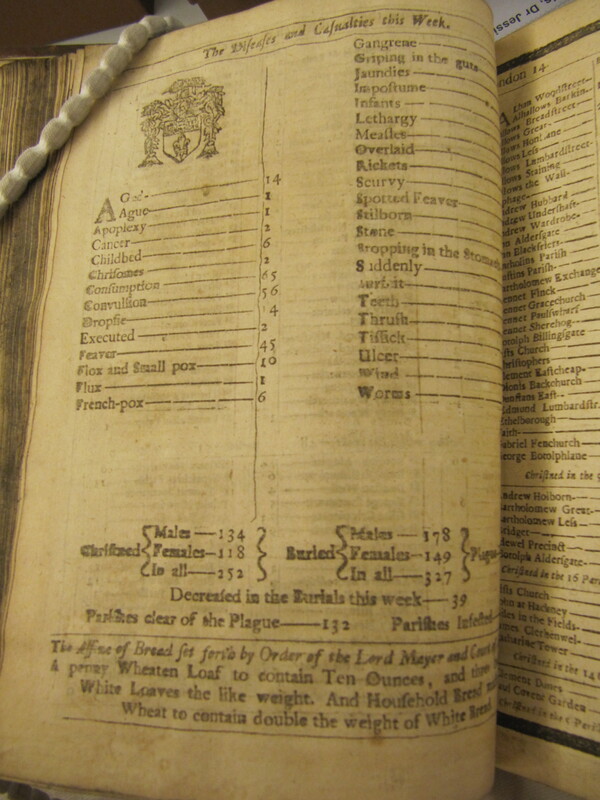 The Diſeaſes and Caſualties this Week.
AGed 14
Ague 1
Apoplexy 1
Cancer 2
Childbed 6
Chriſomes 2
Conſumption 65
Convulſion 56
Dropſie 4
Executed 2
Feaver 45
Flox and Small pox 10
Flux 1
French-pox 6
Gangrene
Griping in the guts
Jaundies
Impoſtume
Infants
Lethargy
Meaſles
Overlaid
Rickets
Scurvy
Spotted Feaver
Stilborn
Stone
Stopping in the Stomach
Suddenly
Surfeit
Teeth
Thruſh
Tiſſick
Ulcer
Wind
Worms
Chriſtned Males—134 Females—118 In all—252
Buried Males—178 Females—149 In all—327 Plague
Decreaſed in the Burials this week—39
Pariſhes clear of the Plague—132 Pariſhes Infected
The Aſſize of Bread ſet forth by Order of the Lord Mayor and Court of
A penny Wheaten Loaf to contain Ten Ounces, and three
White Loaves the like weight. And Houſhold Bread
Wheat to contain double the weight of White Bread
London 14
Alban Woodſtreet
Alhallows Barkin
Breadſtreet
Great
Honilane
Leſs
Lumbardſtreet
Staining
the Wall
Hubbard
Underſhaft
Wardrobe
Alderſgate
Blackfriers
Pariſh
Pariſh
Bartholomew Exchange
Bennet Finck
Bennet Gracechurch
Bennet Paulſwharf
Bennet Sherehog
Botolph Billingſgate
Chriſts Church
Chriſtophers
Clement Eaſtcheap
Dionis Backchurch
Dunſtans Eaſt
Edmond Lumbardſtr.
Ethelborough
Faith
Gabriel Fenchurch
George Botolphlane
Chriſtned in the 9
Andrew Holborn
Bartholomew Great
Bartholomew Leſs
Bridget
Bridewel Precinct
Botolph Alderſgate
Chriſtned in the 16 Pari
Chriſts Church
John at Hackney
Giles in the Fields
James Clerkenwel
Katharine Tower
Chriſtned in the
Clement Danes
Paul Covent Garden
Chriſtned in the